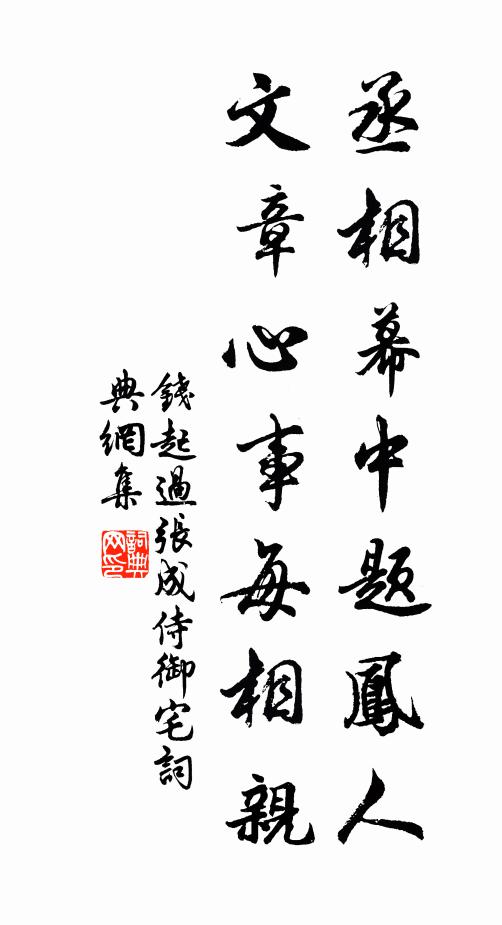 丞相幕中題鳳人
文章心事每相親
錢起過張成侍御宅詞
典網集
詞典
网印